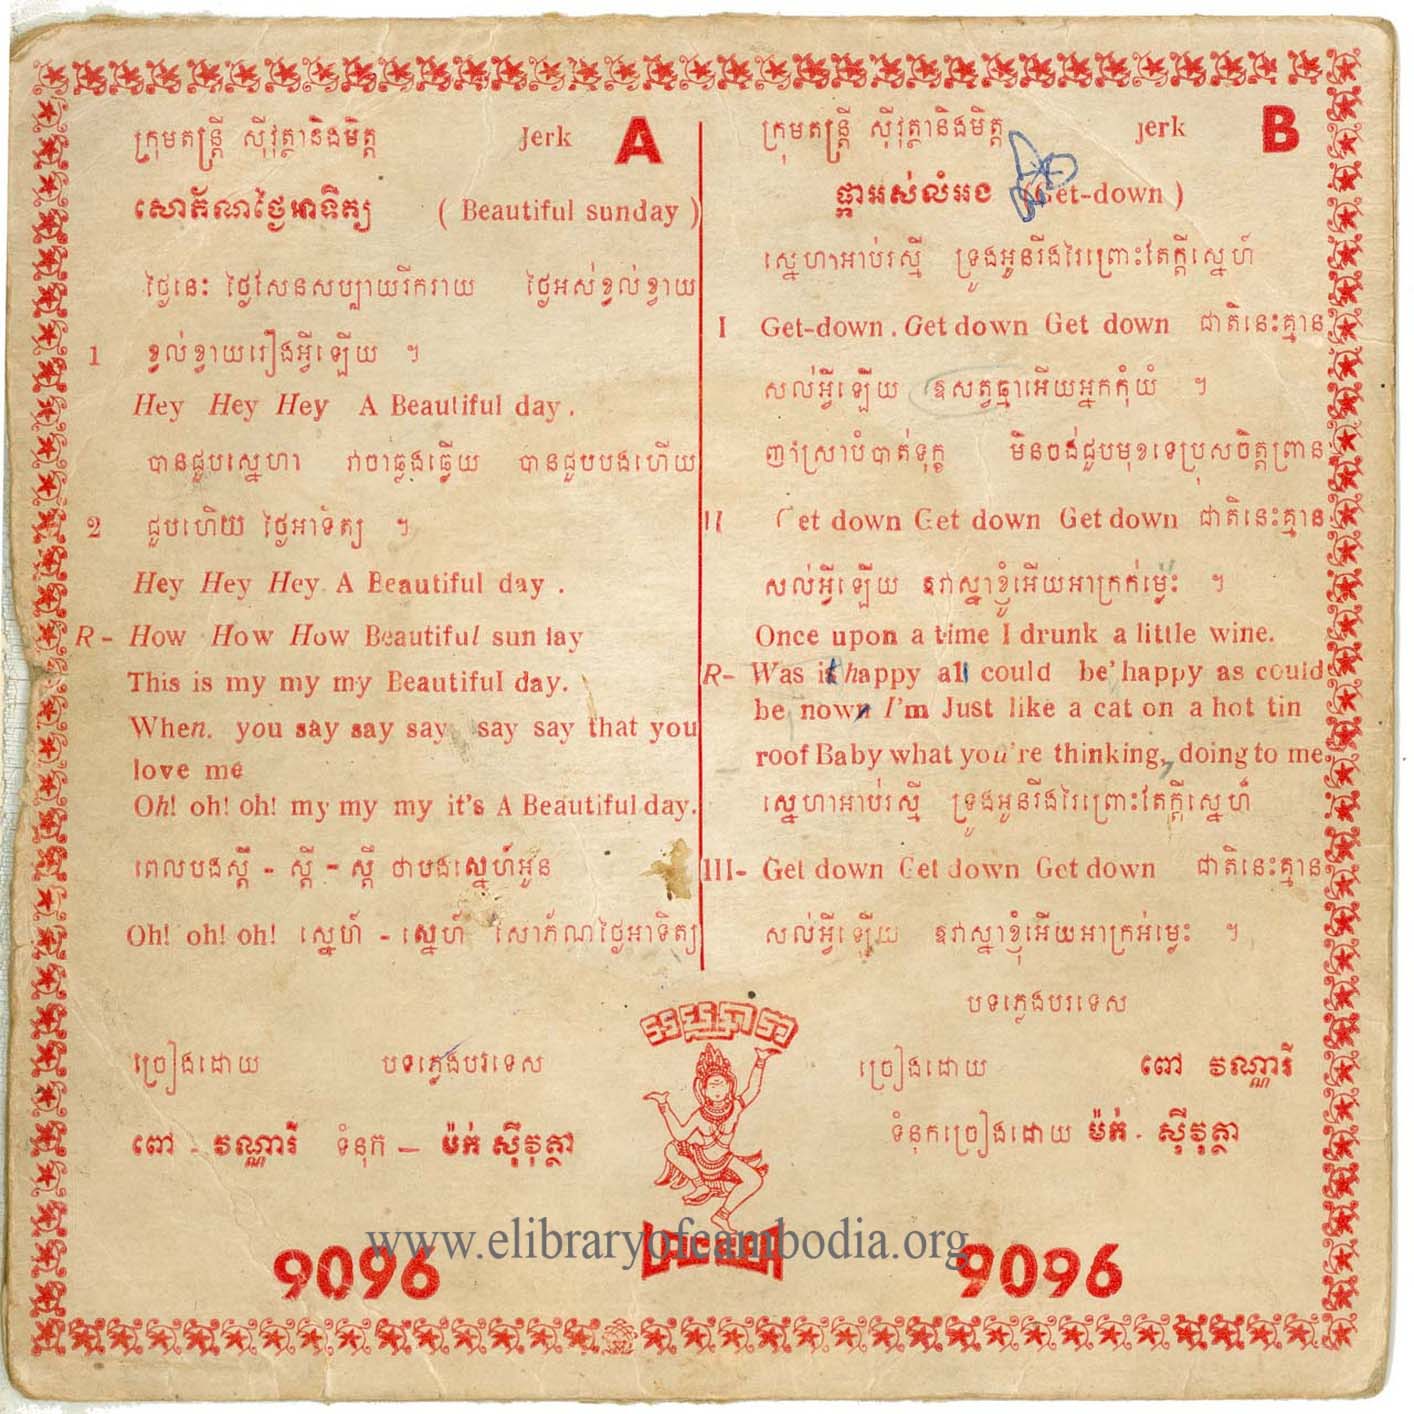 ក្រុមតន្ត្រី ស៊ីវុត្ថានិងមិត្ត Jerk A
សោភ័ណថ្ងៃអាទិត្យ ( Beautiful sunday )
ថ្ងៃនេះ ថ្ងៃសែនសប្បាយរីករាយ ថ្ងៃអស់ខ្វល់ខ្វាយ
1 ខ្វល់ខ្វាយរឿងអ្វីឡើយ ។
Hey Hey Hey A Beautiful day .
បានជួបស្នេហា វាចាឆ្លងឆ្លើយ បានជួបបងហើយ
2 ជួបហើយ ថ្ងៃអាទិត្យ ។
Hey Hey Hey A Beautiful day .
R - How How How Beautiful sun lay
This is my my my Beautiful day.
When. you say say say say say that you
love me
Oh! oh! oh! my my my it's A Beautiful day.
ពេលបងស្ដី - ស្ដី - ស្ដី ថាបងស្នេហ៍អូន
Oh! oh! oh! ស្នេហ៍ - ស្នេហ៍ សោភ័ណថ្ងៃអាទិត្យ
ច្រៀងដោយ បទភ្លេងបរទេស
ពៅ - វណ្ណារី ទំនុក – ម៉ក់ ស៊ីវុត្ថា
9096
ក្រុមតន្ត្រី ស៊ីវុត្ថានិងមិត្ត Jerk B
ផ្កាអស់លំអង (Get-down )
ស្នេហាអាប់រស្មី ទ្រូងអូនរីងរៃព្រោះតែក្ដីស្នេហ៍
I Get-down . Get down Get down ជាតិនេះគ្មាន
សល់អ្វីឡើយ ឱសត្វធ្មាអើយអ្នកកុំយំ ។
ញាំស្រាបំបាត់ទុក្ខ មិនចង់ជួបមុខទេប្រុសចិត្តព្រាន
II Get down Get down Get down ជាតិនេះគ្មាន
សល់អ្វីឡើយ ឱវាស្នាខ្ញុំអើយអាក្រក់ម្លេះ ។
Once upon a time I drunk a little wine.
R- Was it happy all could be' happy as could
be nown I'm Just like a cat on a hot tin
roof Baby what you're thinking, doing to me.
ស្នេហាអាប់រស្មី ទ្រូងអូនរីងរៃព្រោះតែក្ដីស្នេហ៍
III- Get down Get down Get down ជាតិនេះគ្មាន
សល់អ្វីឡើយ ឱវាស្នាខ្ញុំអើយអាក្រអ់ម្លេះ ។
បទភ្លេងបរទេស
ច្រៀងដោយ ពៅ វណ្ណារី
ទំនុកច្រៀងដោយ ម៉ក់ . ស៊ីវុត្ថា
9096
www.elibraryofcambodia.org